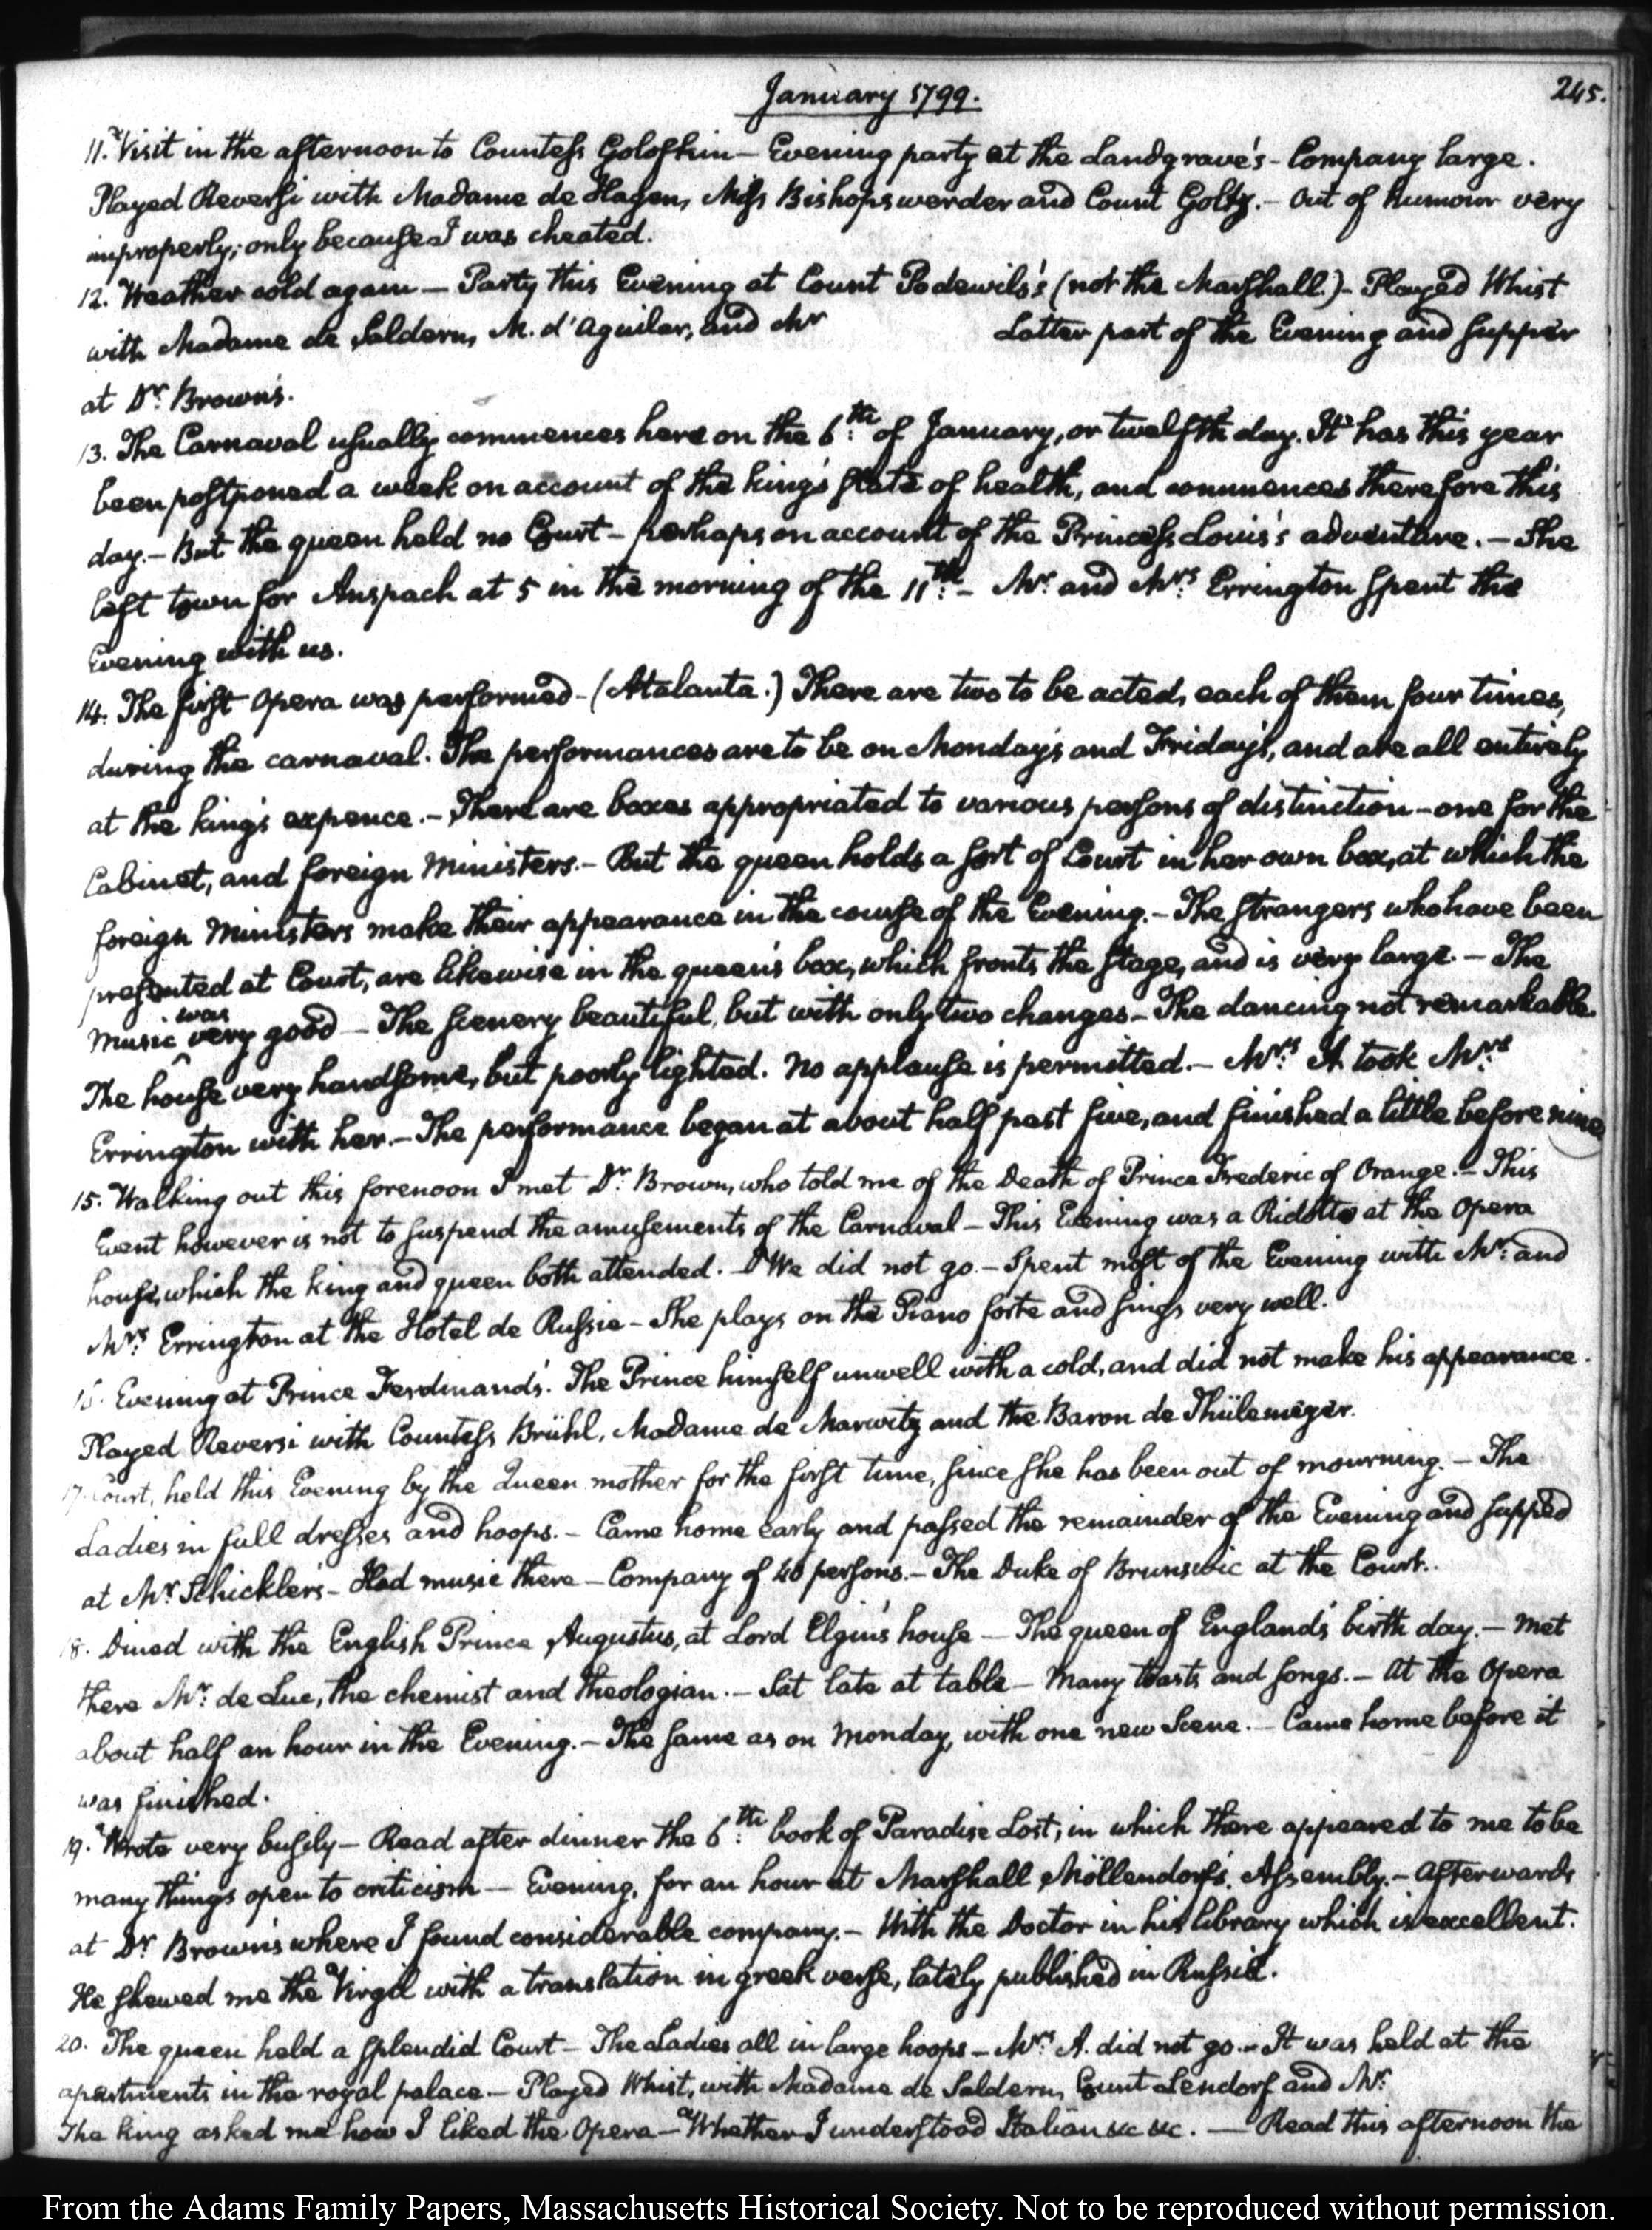 January 1799.
245.
11. Visit in the afternoon to Countess Golofkin — Evening party at the Landgrave's - Company large.
Played Reversi with Madame de Hagen, Miss Bishopswerder and Count Goltz. — Out of humour very
improperly; only because I was cheated.
12. Weather cold again — Party this Evening at Count Podewils's (not the Marshall.) - Played Whist
with Madame de Saldern, M. d'Aguilar, and Mr Latter part of the Evening and supper
at Dr. Brown's.
13. The Carnaval usually commences here on the 6th. of January, or twelfth day. It has this year
been postponed a week on account of the king's state of health, and commences therefore this
day. — But the queen held no Court — perhaps on account of the Princess Louis's adventure. — She
left town for Anspach at 5 in the morning of the 11th. — Mr. and Mrs. Errington spent the
Evening with us.
14. The first Opera was performed - (Atalanta.) There are two to be acted, each of them four times,
during the carnaval. The performances are to be on Monday's and Friday's, and are all entirely
at the king's expence. — There are boxes appropriated to various persons of distinction - one for the
Cabinet, and foreign Ministers. — But the queen holds a sort of Court in her own box, at which the
foreign Ministers make their appearance in the course of the Evening. — The strangers who have been
presented at Court, are likewise in the queen's box, which fronts the stage, and is very large. — The
music was very good — The scenery beautiful, but with only two changes — The dancing not remarkable.
The house very handsome, but poorly lighted. No applause is permitted. — Mrs. A. took Mrs.
Errington with her. — The performance began at about half past five, and finished a little before nine
15. Walking out this forenoon I met Dr. Brown, who told me of the Death of Prince Frederic of Orange. — This
Event however is not to suspend the amusements of the Carnaval — This Evening was a Ridotto at the Opera
house, which the king and queen both attended. — We did not go. — Spent most of the Evening with Mr. and
Mrs. Errington at the Hotel de Russie — She plays on the Piano forte and sings very well.
16. Evening at Prince Ferdinand's. The Prince himself unwell with a cold, and did not make his appearance.
Played Reversi with Countess Brühl, Madame de Marwitz and the Baron de Thülemeyer.
17. Court, held this Evening by the Queen mother for the first time, since she has been out of mourning. — The
Ladies in full dresses and hoops. — Came home early and passed the remainder of the Evening and supped
at Mr. Schickler's — Had music there — Company of 40 persons. — The Duke of Brunswic at the Court.
18. Dined with the English Prince Augustus, at Lord Elgin's house — The queen of England's birth day. — Met
there Mr. de Luc, the chemist and theologian. — Sat late at table — Many toasts and songs. — At the Opera
about half an hour in the Evening. — The same as on Monday, with one new scene. — Came home before it
was finished.
19. Wrote very busily — Read after dinner the 6th. book of Paradise Lost, in which there appeared to me to be
many things open to criticism — Evening, for an hour at Marshall Möllendorf's Assembly. — Afterwards
at Dr. Brown's where I found considerable company. — With the Doctor in his library which is excellent.
He shewed me the Virgil with a translation in greek verse, lately published in Russia.
20. The queen held a splendid Court — The Ladies all in large hoops — Mrs. A. did not go. — It was held at the
apartments in the royal palace — Played Whist, with Madame de Saldern, Count Lendorf and Mr.
The king asked me how I liked the Opera — Whether I understood Italian &c &c. — Read this afternoon the
From the Adams Family Papers, Massachusetts Historical Society. Not to be reproduced without permission.